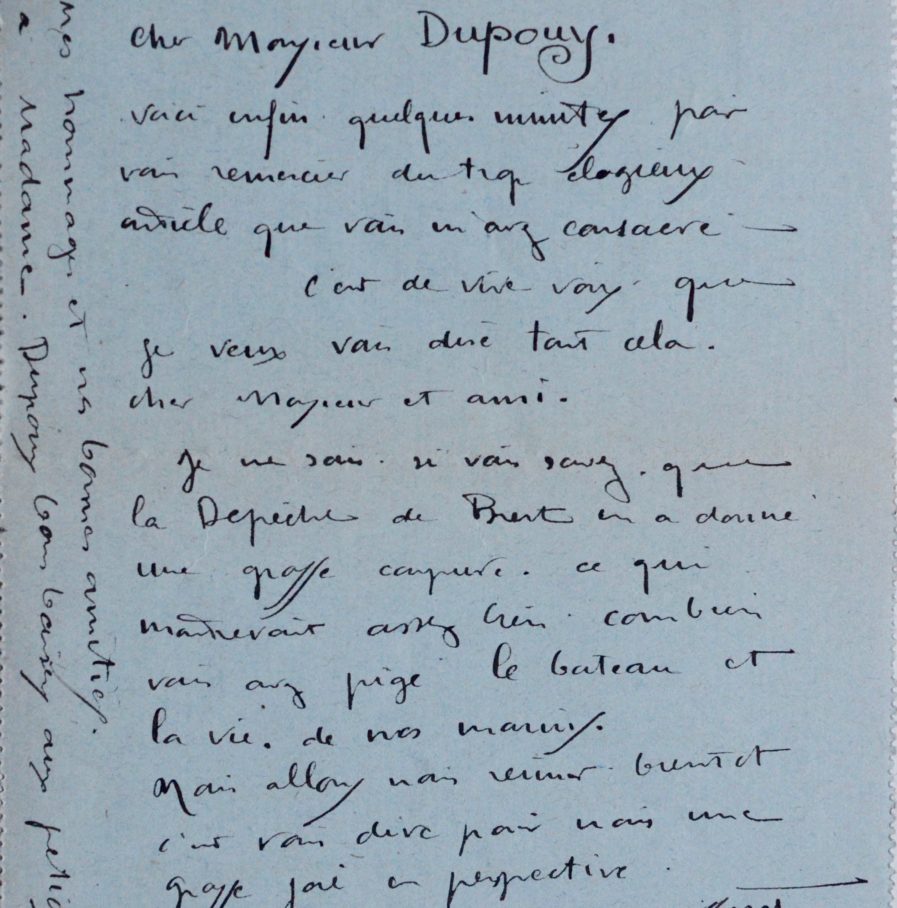 cher Monsieur Dupouy.
voici enfin quelques minutes pour
vous remercier du trop élogieux
article que vous m'avez consacré —
c'est de vive voix que
je veux vous dire tout cela.
cher Monsieur et ami.
Je ne sais si vous savez que
la Dépêche de Brest en a donné
une grosse coupure. ce qui
montrerait assez bien combien
vous avez pigé le bateau et
la vie de nos marins.
Nous allons nous réunir bientôt
c'est vous dire pour nous une
grosse joie en perspective.
mes hommages et nos bonnes amitiés.
à Madame Dupouy bons baisers aux petits